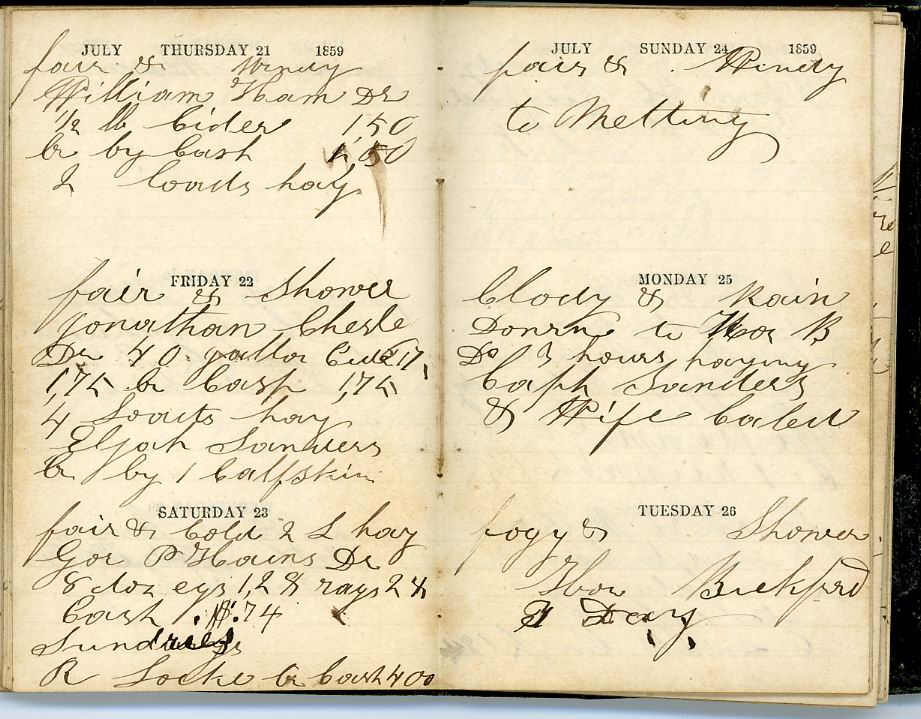 JULY THURSDAY 21 1859
fair & Windy
William Ham Dr
1/2 lb Cider 1,50
Cr by Cash 1,50
2 loads hay
FRIDAY 22
fair & Shower
Jonathan Chesle
Dr 40 gallon
1,75 Cr Cash 1,75
4 Loads hay
Eljah Sanders
Cr by 1 Calfskin
SATURDAY 23
fair & Cold 2 L hay
Gor P Hains Dr
8 doz egs 1,28 rags 24
Cash $.74
Sundries
R Locke Cr Cash 400
JULY SUNDAY 24 1859
fair & Windy
to Metting
MONDAY 25
Clody & Rain
to B
3 hours haying
Capt Sanders
& Wife Caled
TUESDAY 26
fogy & Shower
Thos Bickford
Day